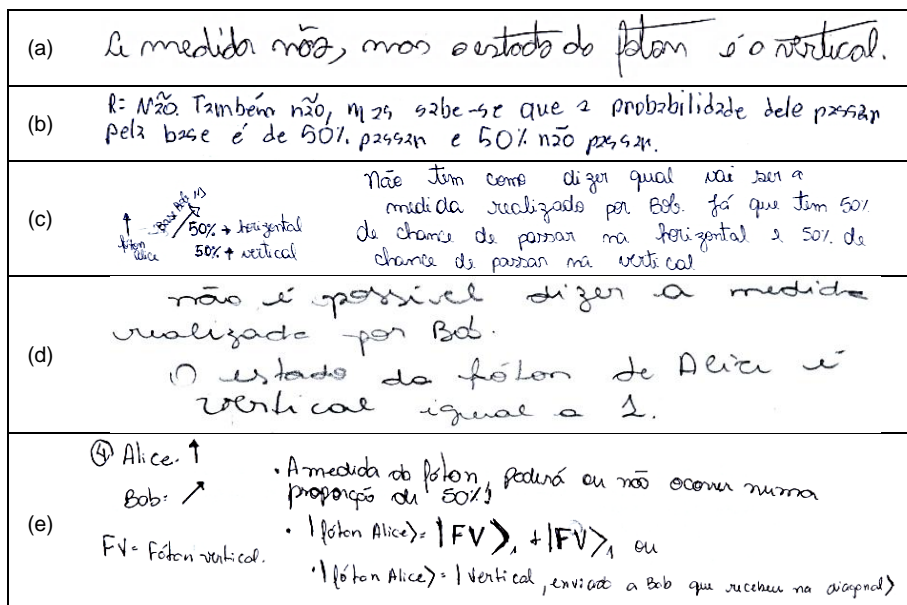 (a)
A medida não, mas o estado do fóton é o vertical.
(b)
R: Não. Também não, mas sabe-se que a probabilidade dele passar
pela base é de 50% passar e 50% não passar.
(c)
fóton
Alice
Base Bob
50% → horizontal
50% ↑ vertical
Não tem como dizer qual vai ser a
medida realizado por Bob. Já que tem 50%
de chance de passar na horizontal e 50% de
chance de passar na vertical
(d)
não é possível dizer a medida
realizada por Bob.
O estado do fóton de Alice é
vertical igual a 1.
(e)
④ Alice: ↑
Bob: ↗
FV = Fóton vertical.
• A medida do fóton, poderá ou não ocorrer numa
proporção de 50%
• |fóton Alice⟩ = |FV⟩₁ + |FV⟩₁ ou
• |fóton Alice⟩ = |vertical, enviado a Bob que recebeu na diagonal⟩